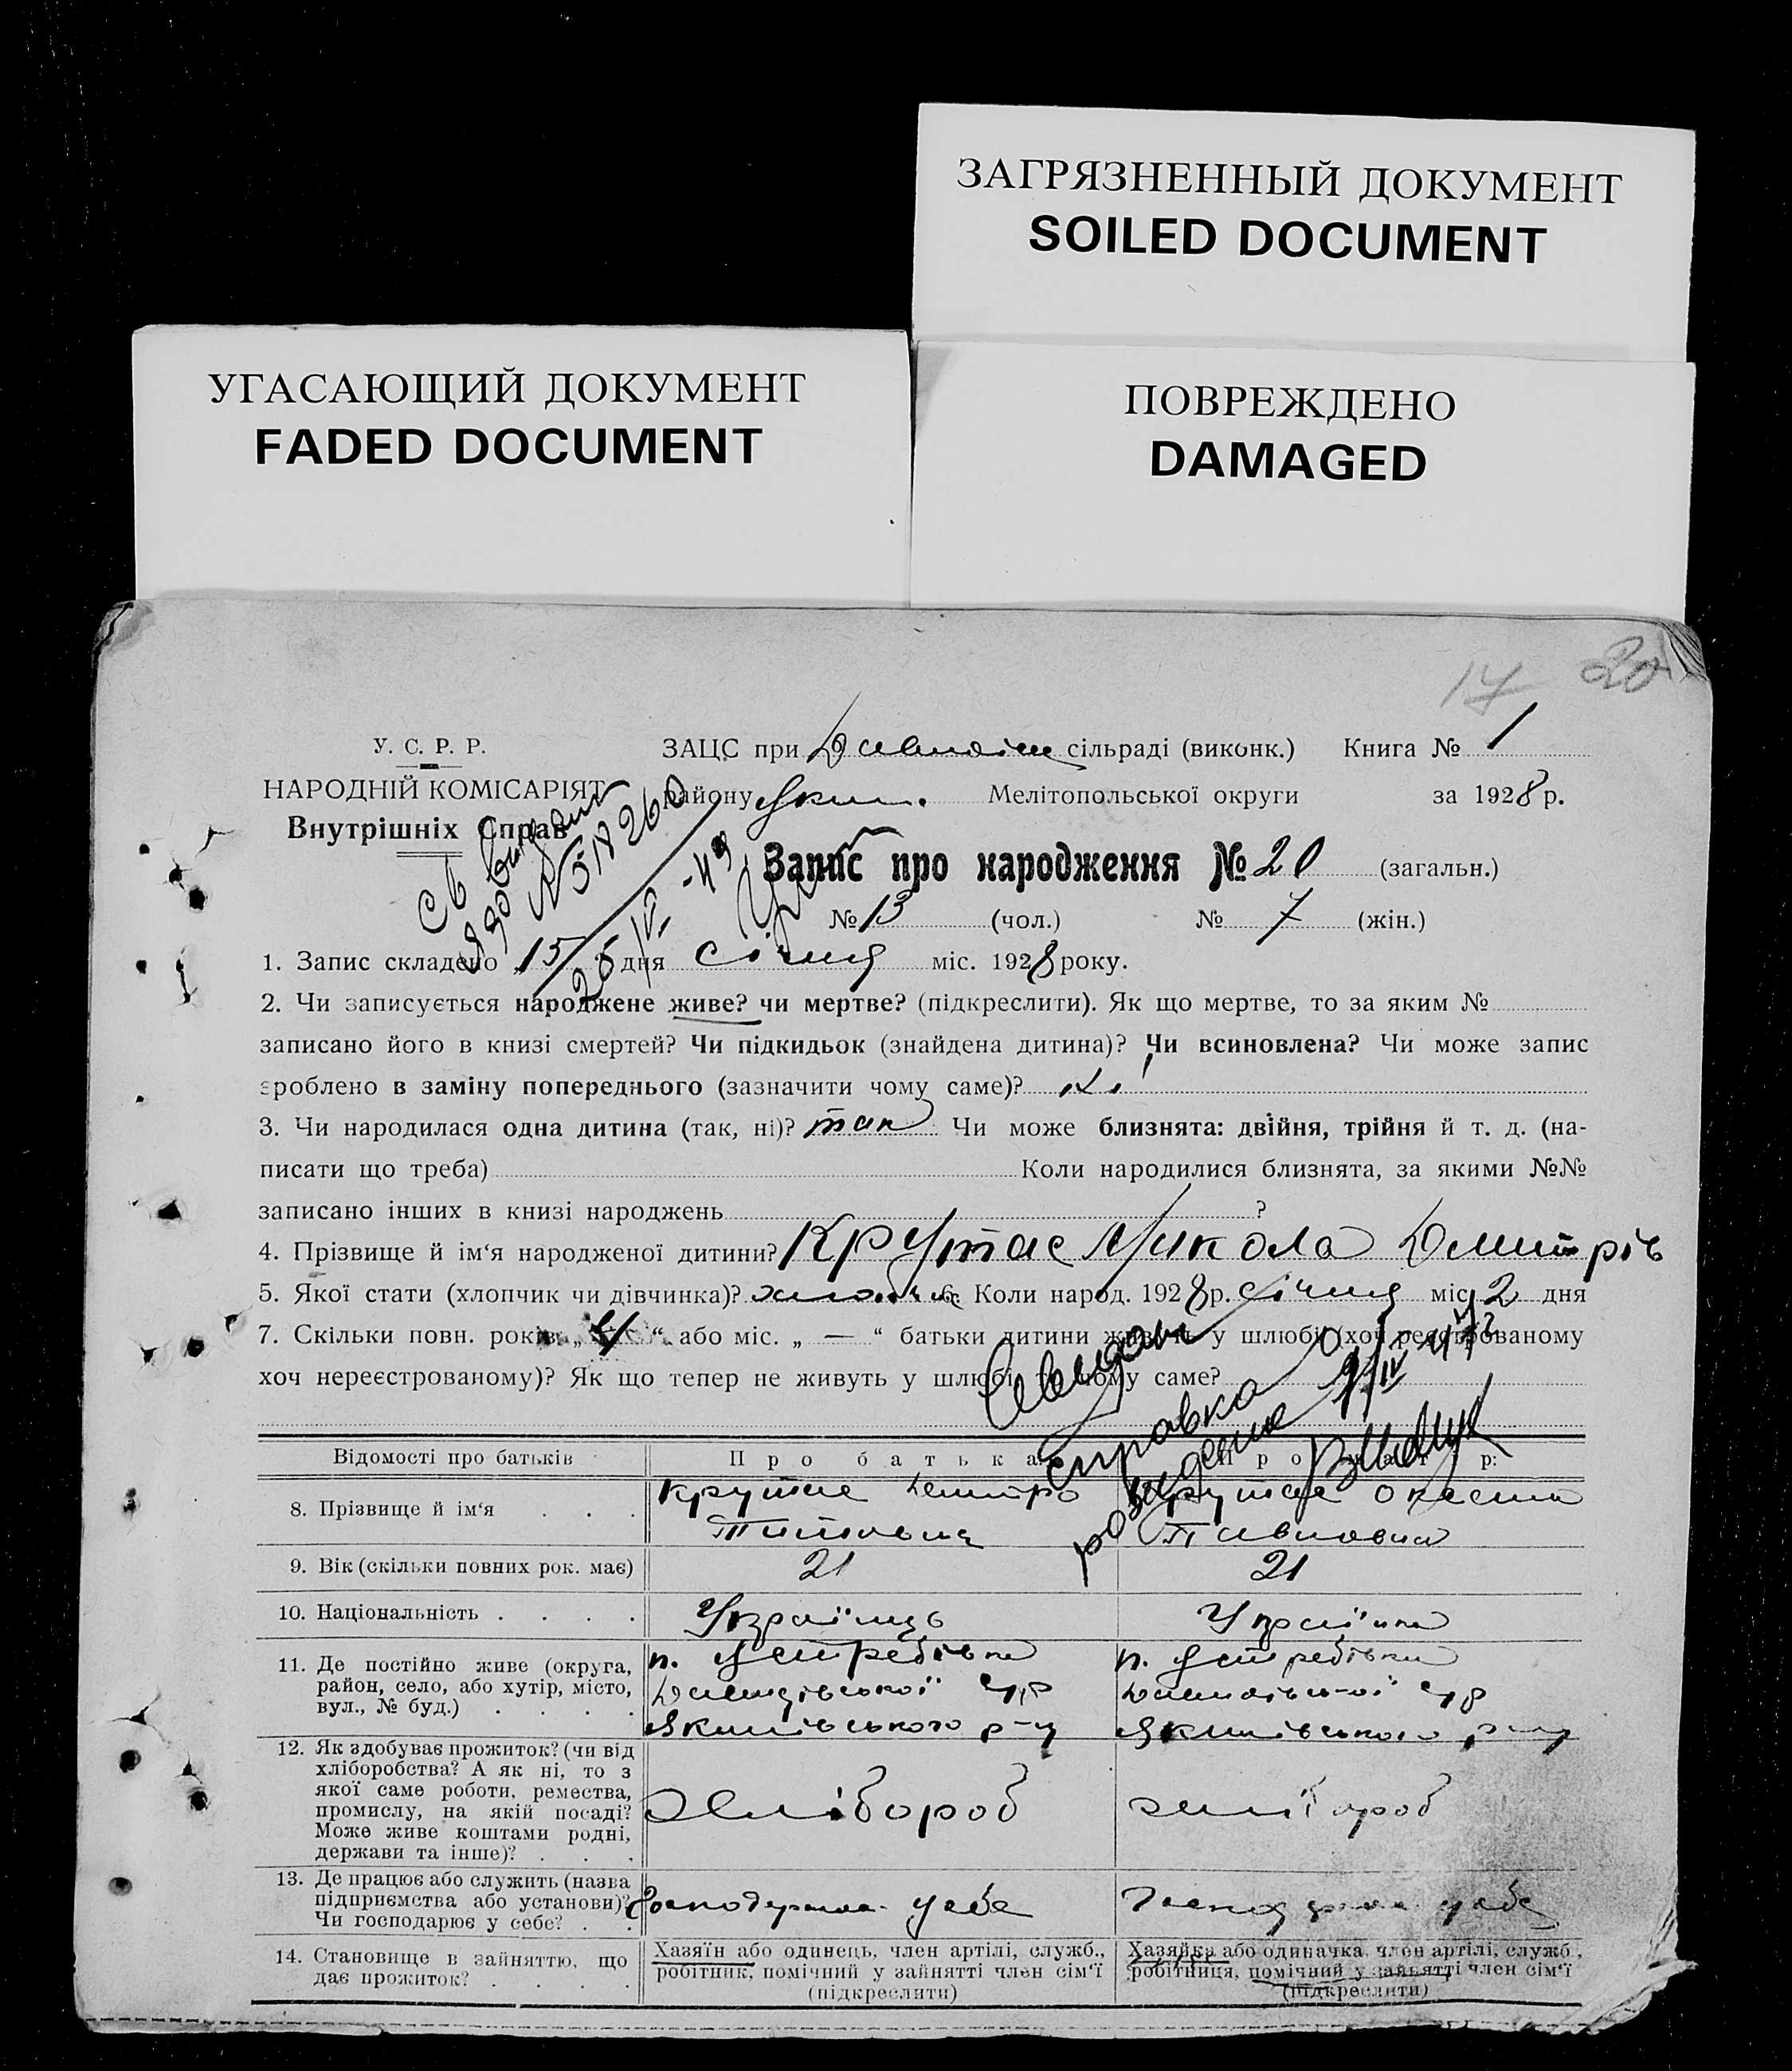 ЗАГРЯЗНЕННЫЙ ДОКУМЕНТ
SOILED DOCUMENT
УГАСАЮЩИЙ ДОКУМЕНТ
FADED DOCUMENT
ПОВРЕЖДЕНО
DAMAGED
17 20
У. С. Р. Р.
НАРОДНІЙ КОМІСАРІЯТ
Внутрішніх Справ
ЗАЦС при сільраді (виконк.) Книга № 1
району Яким. Мелітопольської округи за 1928 р.
Запис про народження № 20 (загальн.)
№ 13 (чол.) № 7 (жін.)
1. Запис складено „15 дня січня міс. 1928 року.
2. Чи записується народжене живе? чи мертве? (підкреслити). Як що мертве, то за яким №
записано його в книзі смертей? Чи підкидьок (знайдена дитина)? Чи всиновлена? Чи може запис
зроблено в заміну попереднього (зазначити чому саме)?
3. Чи народилася одна дитина (так, ні)? так Чи може близнята: двійня, трійня й т. д. (на-
писати що треба) Коли народилися близнята, за якими №№
записано інших в книзі народжень ?
4. Прізвище й ім‘я народженої дитини? Крутас Микола Дмитрів
5. Якої стати (хлопчик чи дівчинка)? хлопчик 6. Коли народ. 1928 р. січня міс. 2 дня
7. Скільки повн. років „ “ або міс. „ — “ батьки дитини живуть у шлюбі (хоч реєстрованому
хоч нереєстрованому)? Як що тепер не живуть у шлюбі, то чому саме?
справка о
рождение 9/IV 47
Відомості про батьків Про батька Про матір:
8. Прізвище й ім‘я . . . Крутас Дмитро Крутас
Павловна
9. Вік (скільки повних рок. має) 21 21
10. Національність . . . . Українець Українка
11. Де постійно живе (округа, п. Ястребівка п. Ястребівка
район, село, або хутір, місто,
вул., № буд.) . . . . Якимівського р-ну Якимівського р-ну
12. Як здобуває прожиток? (чи від
хліборобства? А як ні, то з
якої саме роботи, ремества,
промислу, на якій посаді? Хлібороб хлібороб
Може живе коштами родні,
держави та інше)? . . .
13. Де працює або служить (назва
підприємства або установи)? у себе у себе
Чи господарює у себе? . .
14. Становище в зайняттю, що Хазяїн або одинець, член артілі, служб., Хазяйка або одиначка, член артілі, служб.,
дає прожиток? . . . . робітник, помічний у зайнятті член сім‘ї робітниця, помічний у зайнятті член сім‘ї
(підкреслити) (підкреслити)